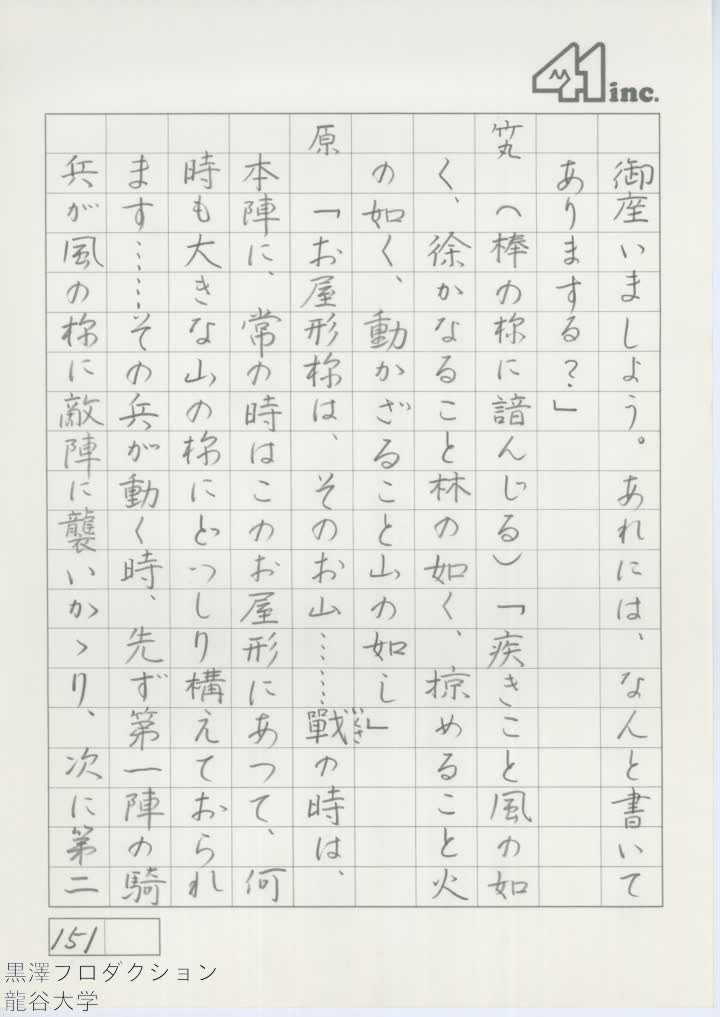 41 inc.
御座いましょう。あれには、なんと書いて
ありまする?」
竹丸 (棒の様に諳んじる)「疾きこと風の如
く、徐かなること林の如く、掠めること火
の如く、動かざること山の如し」
原 「お屋形様は、そのお山……戰の時は、
いくさ
本陣に、常の時はこのお屋形にあって、何
時も大きな山の様にどっしり構えておられ
ます……その兵が動く時、先ず第一陣の騎
兵が風の様に敵陣に襲いかゝり、次に第二
151
黒澤プロダクション
龍谷大学